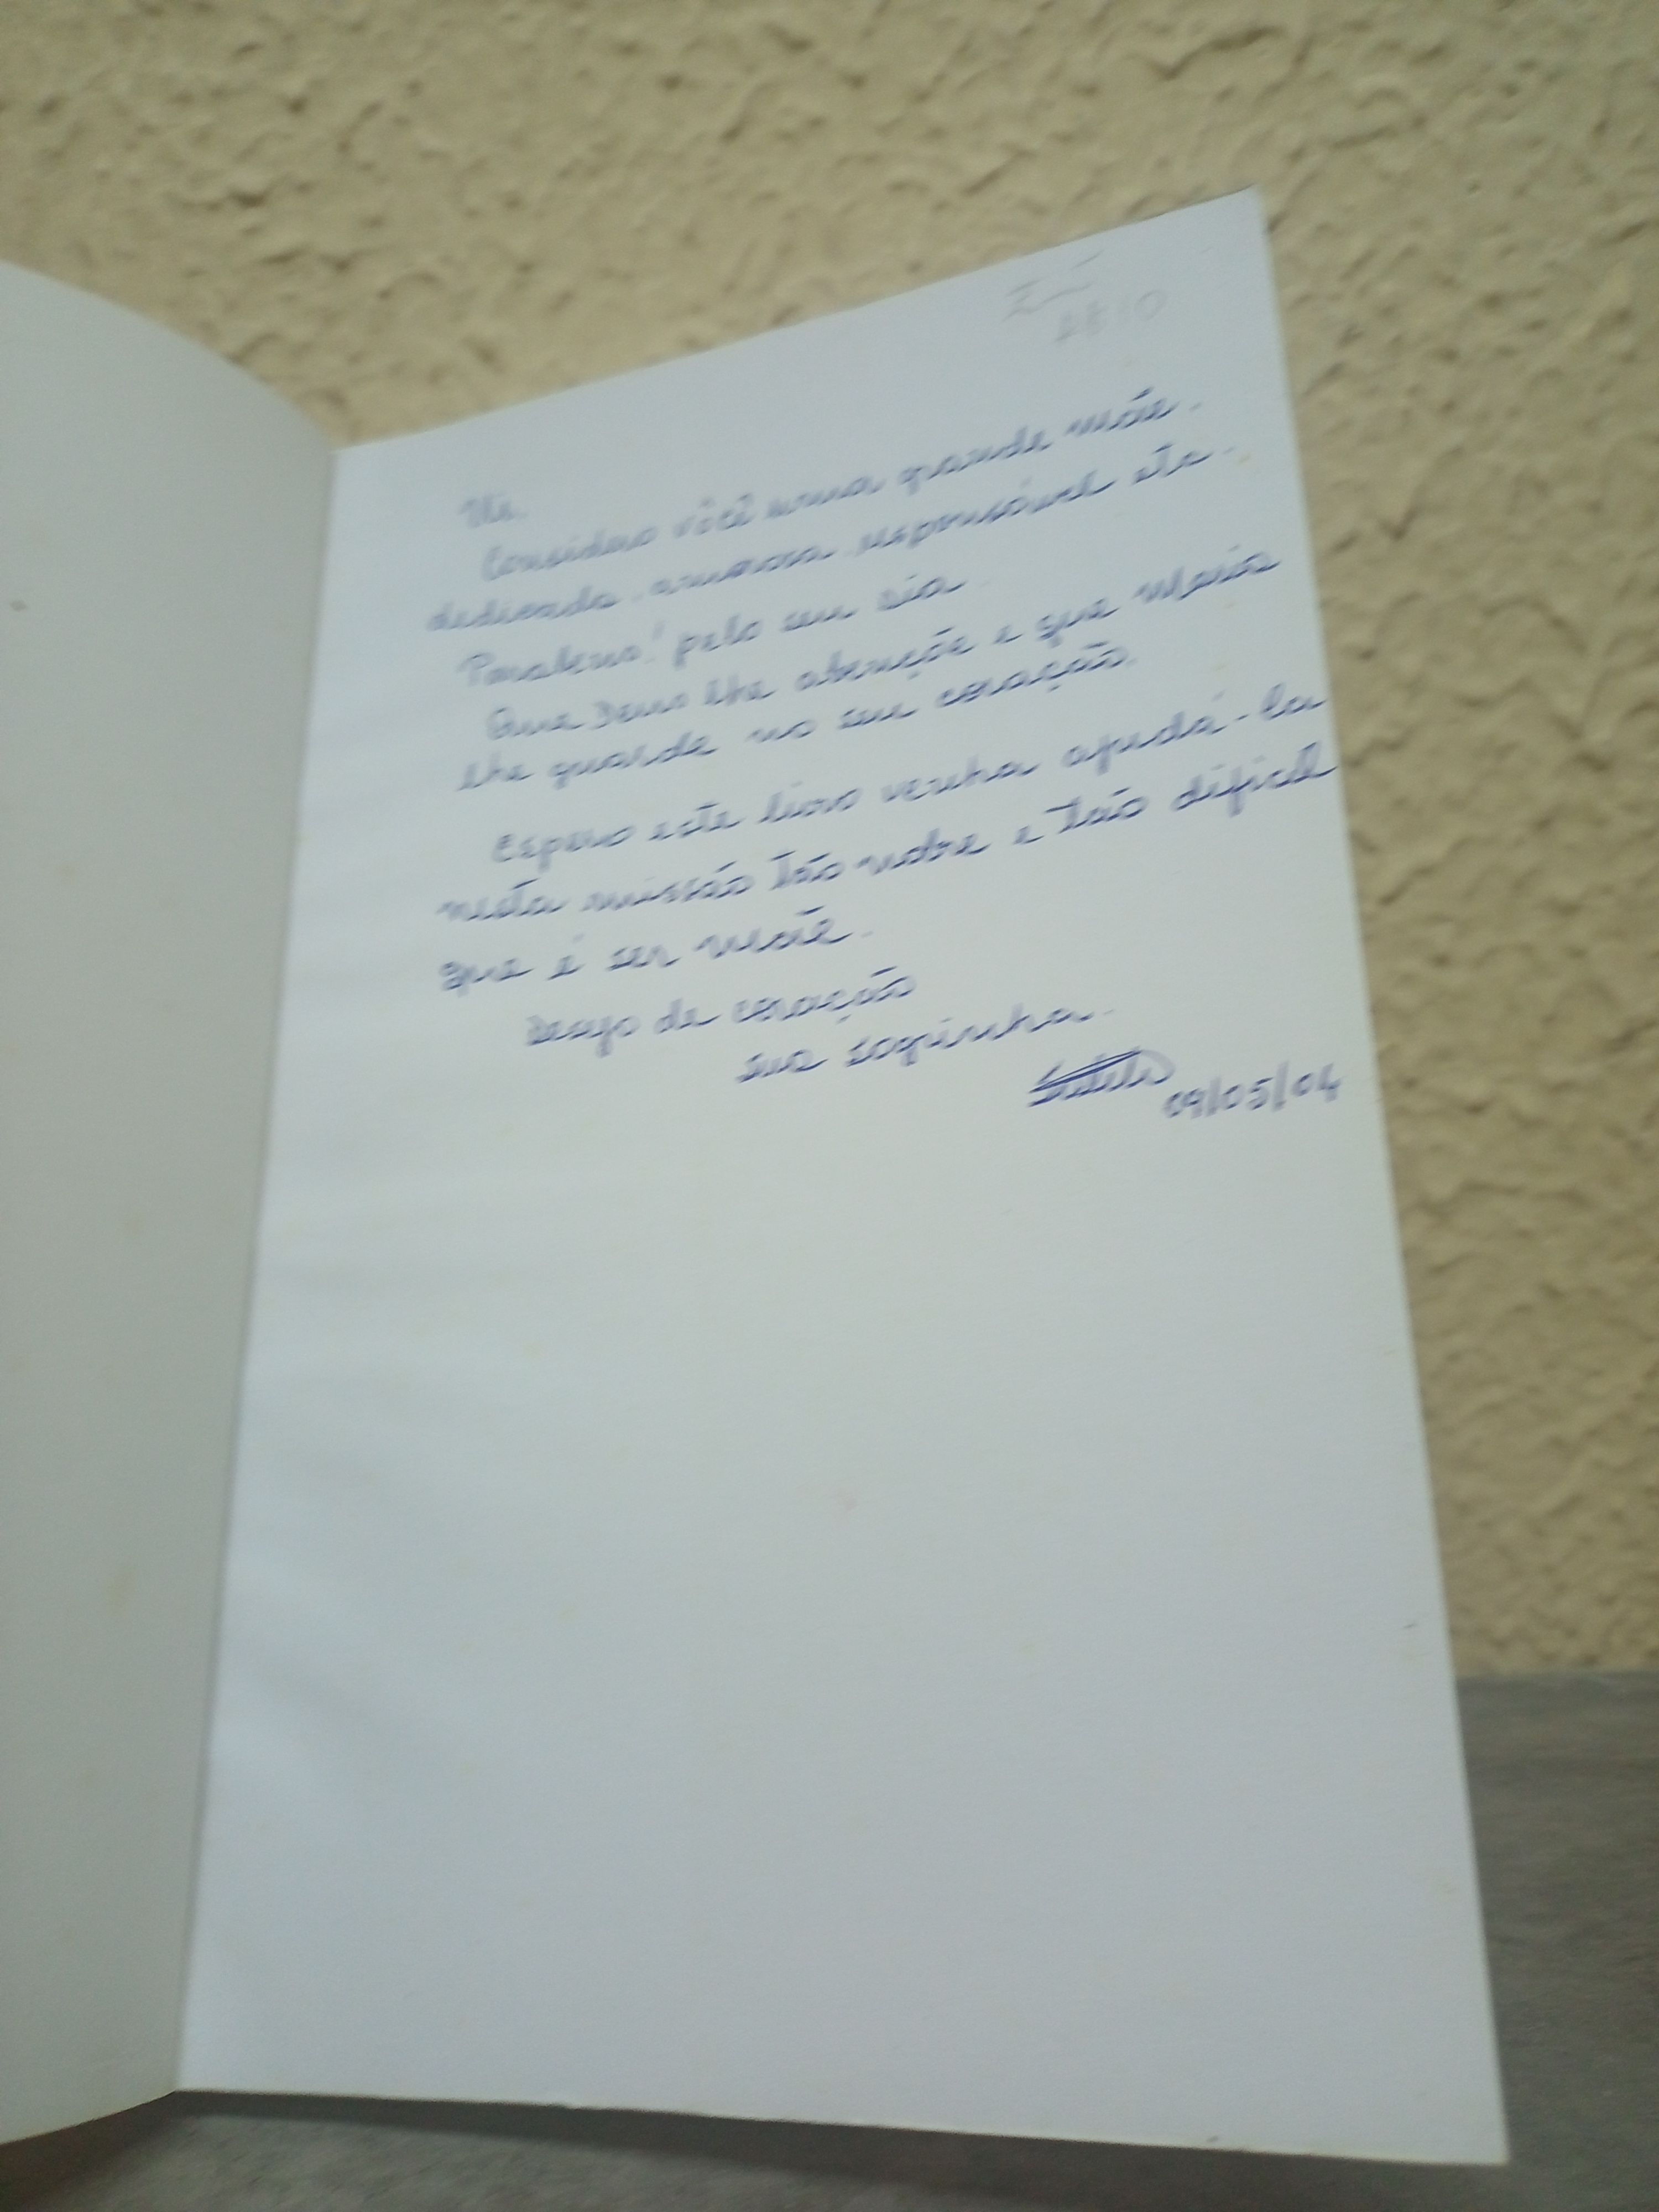 Considero você uma grande mãe.
dedicada. amorosa. responsável etc.
Parabens! pelo seu dia.
Que Deus lhe abençõe e que Maria
lhe guarde no seu coração.
Espero este livro venha ajudá-la
nesta missão tão nobre e tão difícil
que é ser mãe.
Desejo de coração
sua sogrinha.
09/05/04